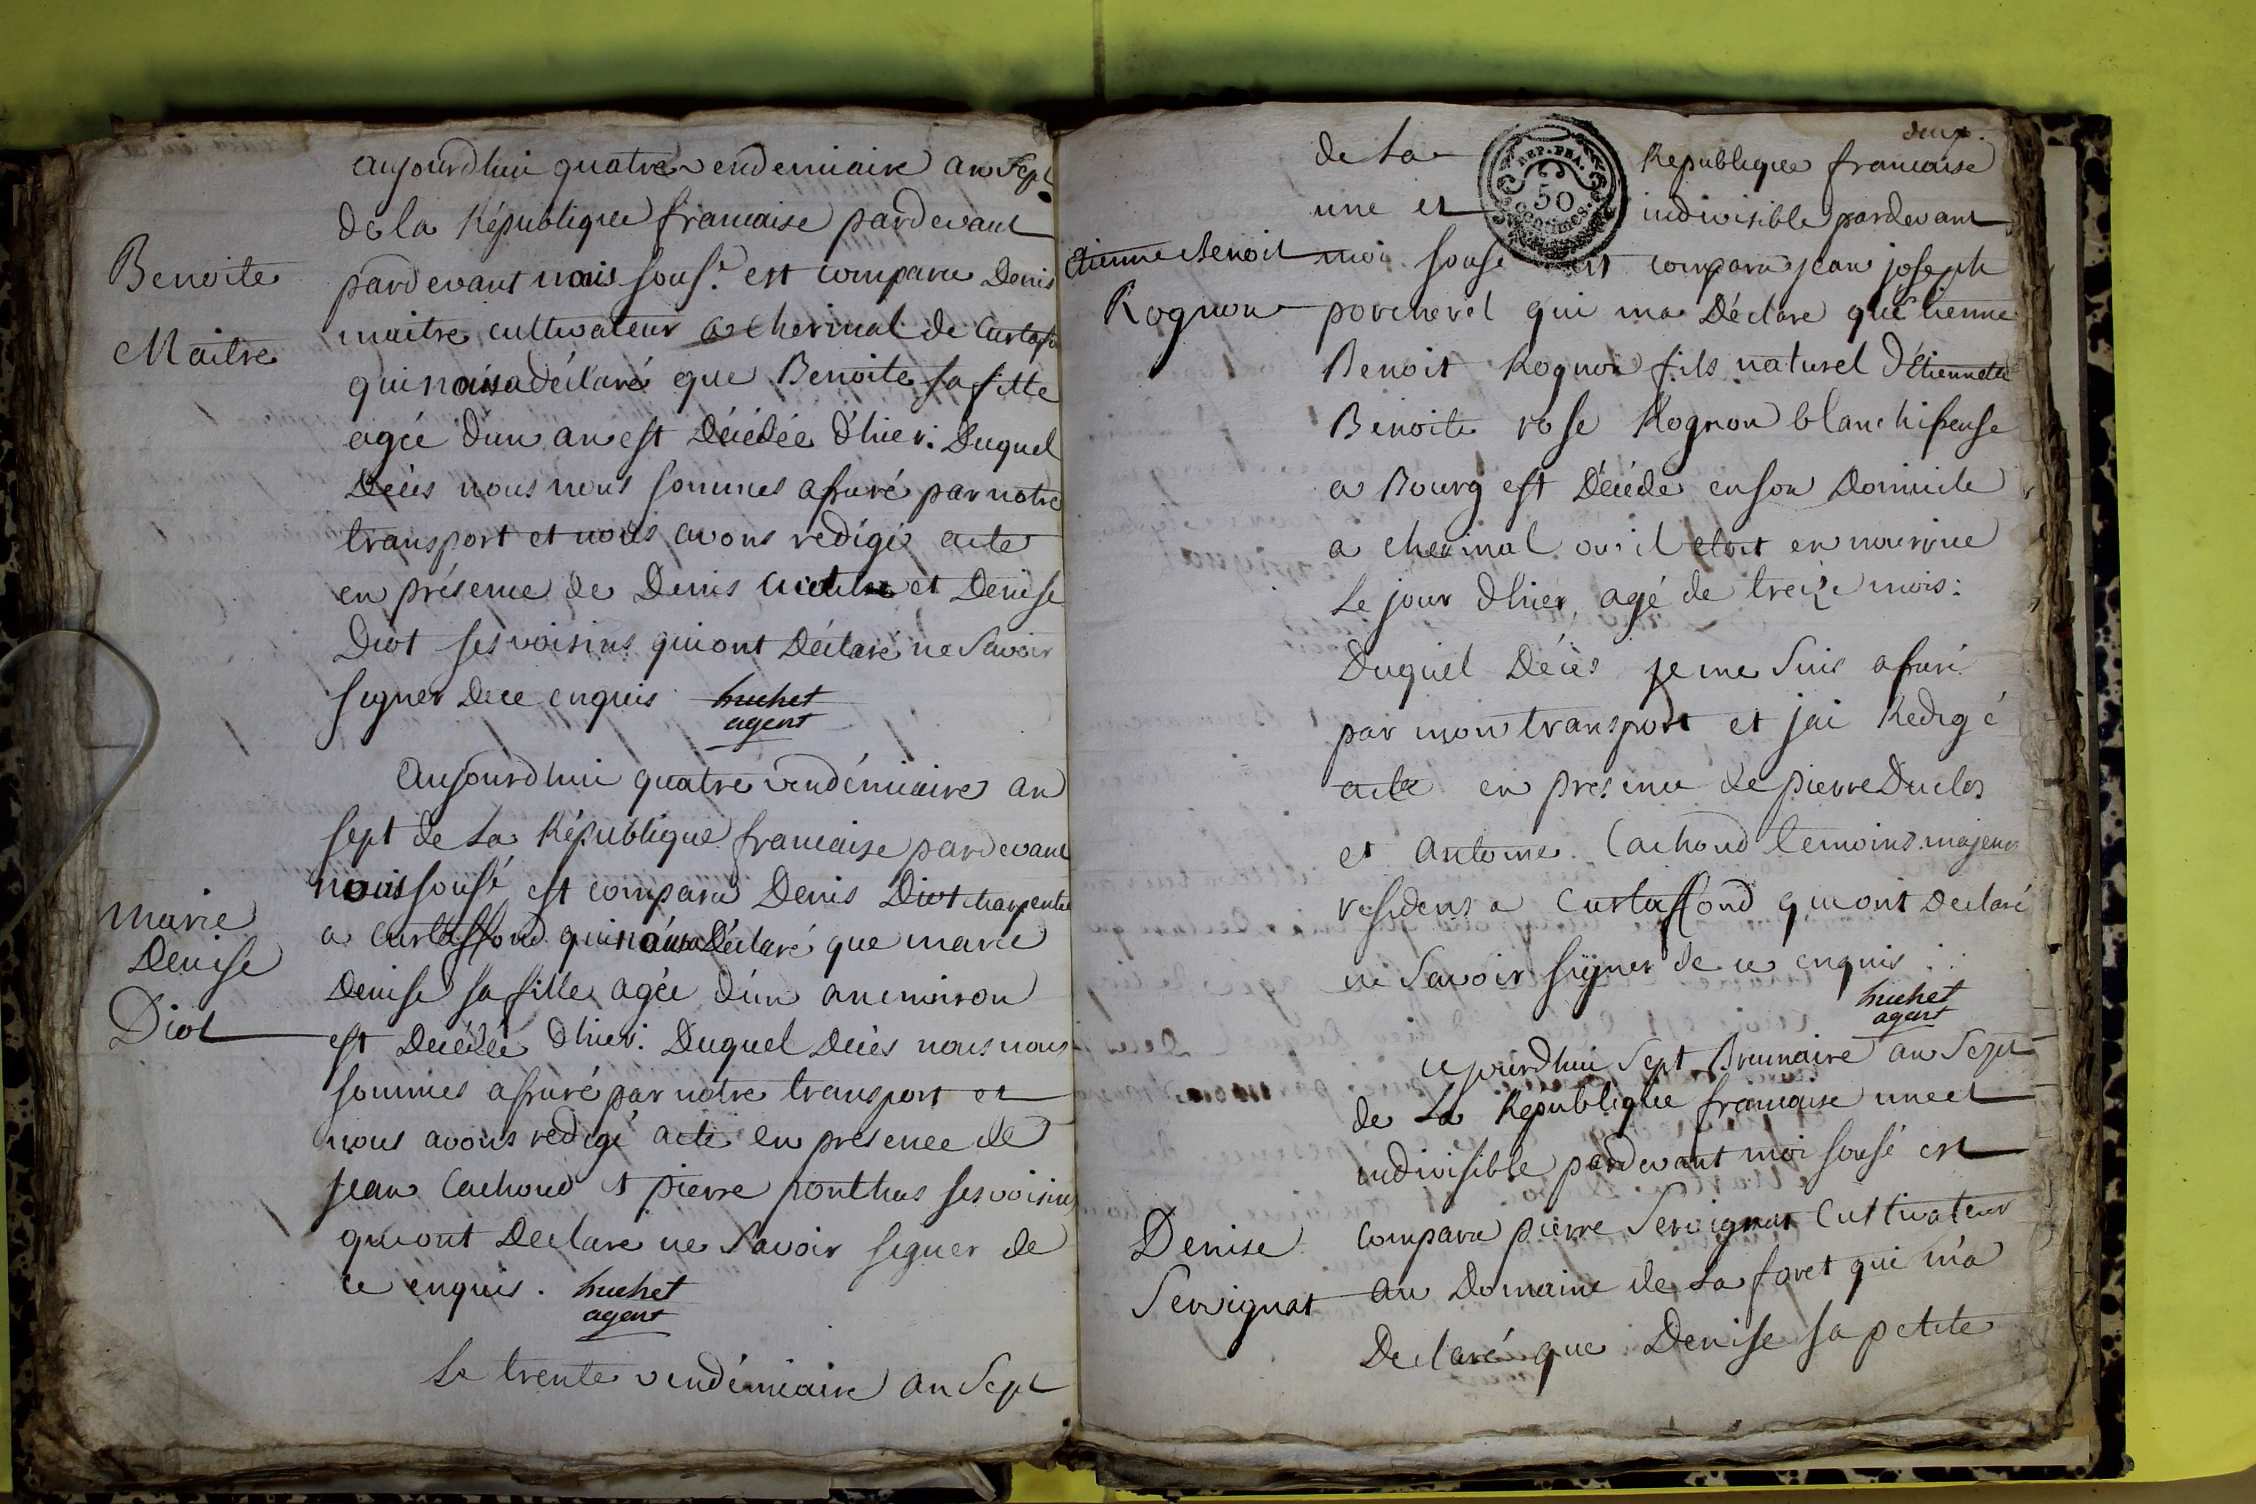 aujourdhui quatre vendemiaire an Sept
de la République francaise pardevant
Benoite
Maitre
pardevant nous sousé. est comparu Denis
maitre cultivateur a Cherinal de Curtafo
qui nous a déclaré que Benoite sa fille
agée d'un an est Décédée d'hier. Duquel
Décès nous nous sommes assuré par notre
transport et nous avons redigé acte
en présence de Denis et Denise
Diot ses voisins qui ont Déclaré ne Savoir
signer de ce enquis. huchet
agent
Aujourdhui quatre vendémiaire an
sept de la République francaise pardevant
marie
Denise
Diot
nous sousé est comparu Denis Diot charpentier
a Curtaffond qui nous a Déclaré que marie
Denise sa fille agée d'un an environ
est Décédée d'hier. Duquel Décès nous nous
sommes assuré par notre transport et
nous avons redigé acte en présence de
Jean Cachoud et pierre ponthus ses voisins
qui ont Déclaré ne Savoir signer de
ce enquis. huchet
agent
Le trente vendémiaire an Sept
deux.
de la République francaise
une et indivisible pardevant
REP. FRA.
50
centimes.
Etienne Benoit
Rognon
moi sousé est comparu jean joseph
porcherel qui ma Déclaré qu'Etienne
Benoit Rognon fils naturel d'Etiennette
Benoite rose Rognon blanchisseuse
a Bourg est Décédé en son Domicile
a cherinal ou il etoit en nourrice
Le jour d'hier, agé de treize mois:
Duquel Décès je me suis assuré
par mon transport et jai Redigé
acte en presence de pierre Duclos
et antoine Cachoud temoins majeurs
residens a Curtaffond qui ont Declaré
ne Savoir signer de ce enquis.
huchet
agent
cejourdhui Sept Brumaire an Sept
de La République francaise une et
indivisible pardevant moi sousé est
Denise
Servignat
comparu pierre Servignat Cultivateur
au Domaine de La foret qui m'a
Declaré que Denise sa petite